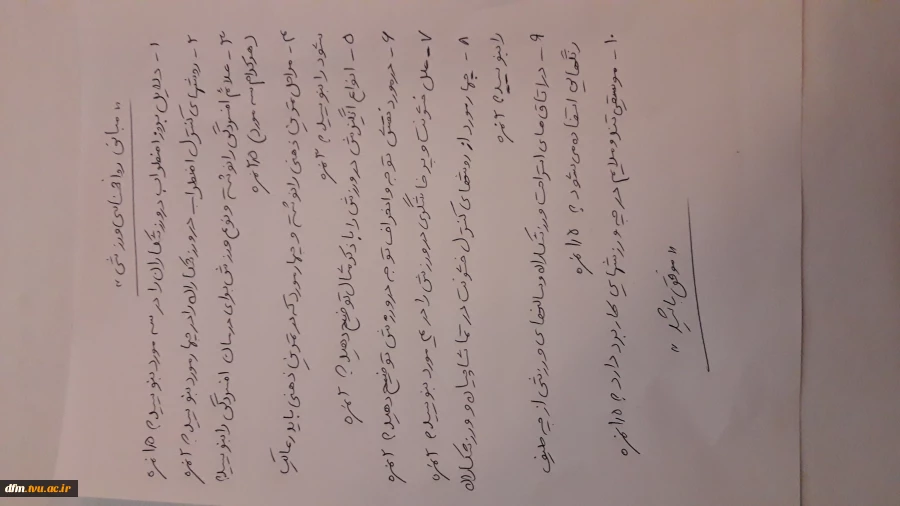 "مبانی روانشناسی ورزشی"
۱- دلایل بروز اضطراب در ورزشکاران را در سه مورد بنویسید؟ ۱/۵ نمره
۲- روشهای کنترل اضطراب در ورزشکاران را در چهار مورد بنویسید؟ ۲ نمره
۳- علائم افسردگی را نوشته و نوع ورزش برای درمان افسردگی را بنویسید؟
(هرکدام سه مورد) ۲/۵ نمره
۴- مراحل تمرین ذهنی را نوشته و چهار مورد که در تمرین ذهنی باید رعایت
شود را بنویسید؟ ۳ نمره
۵- انواع انگیزش در ورزش را با ذکر مثال توضیح دهید؟ ۲ نمره
۶- در مورد نقش توجه و انحراف توجه در ورزش توضیح دهید؟ ۲ نمره
۷- علل خشونت و پرخاشگری در ورزش را در مورد بنویسید؟ ۲ نمره
۸- چهار مورد از روشهای کنترل خشونت در تماشاچیان و ورزشکاران
را بنویسید؟ ۲ نمره
۹- در اتاق های استراحت ورزشکاران و سالنهای ورزشی از چه طیف
رنگهایی استفاده می شود؟ ۱/۵ نمره
۱۰- موسیقی تند و ملایم در چه ورزشهای کاربرد دارد؟ ۱/۵ نمره
"موفق باشید"
dfm.tvu.ac.ir